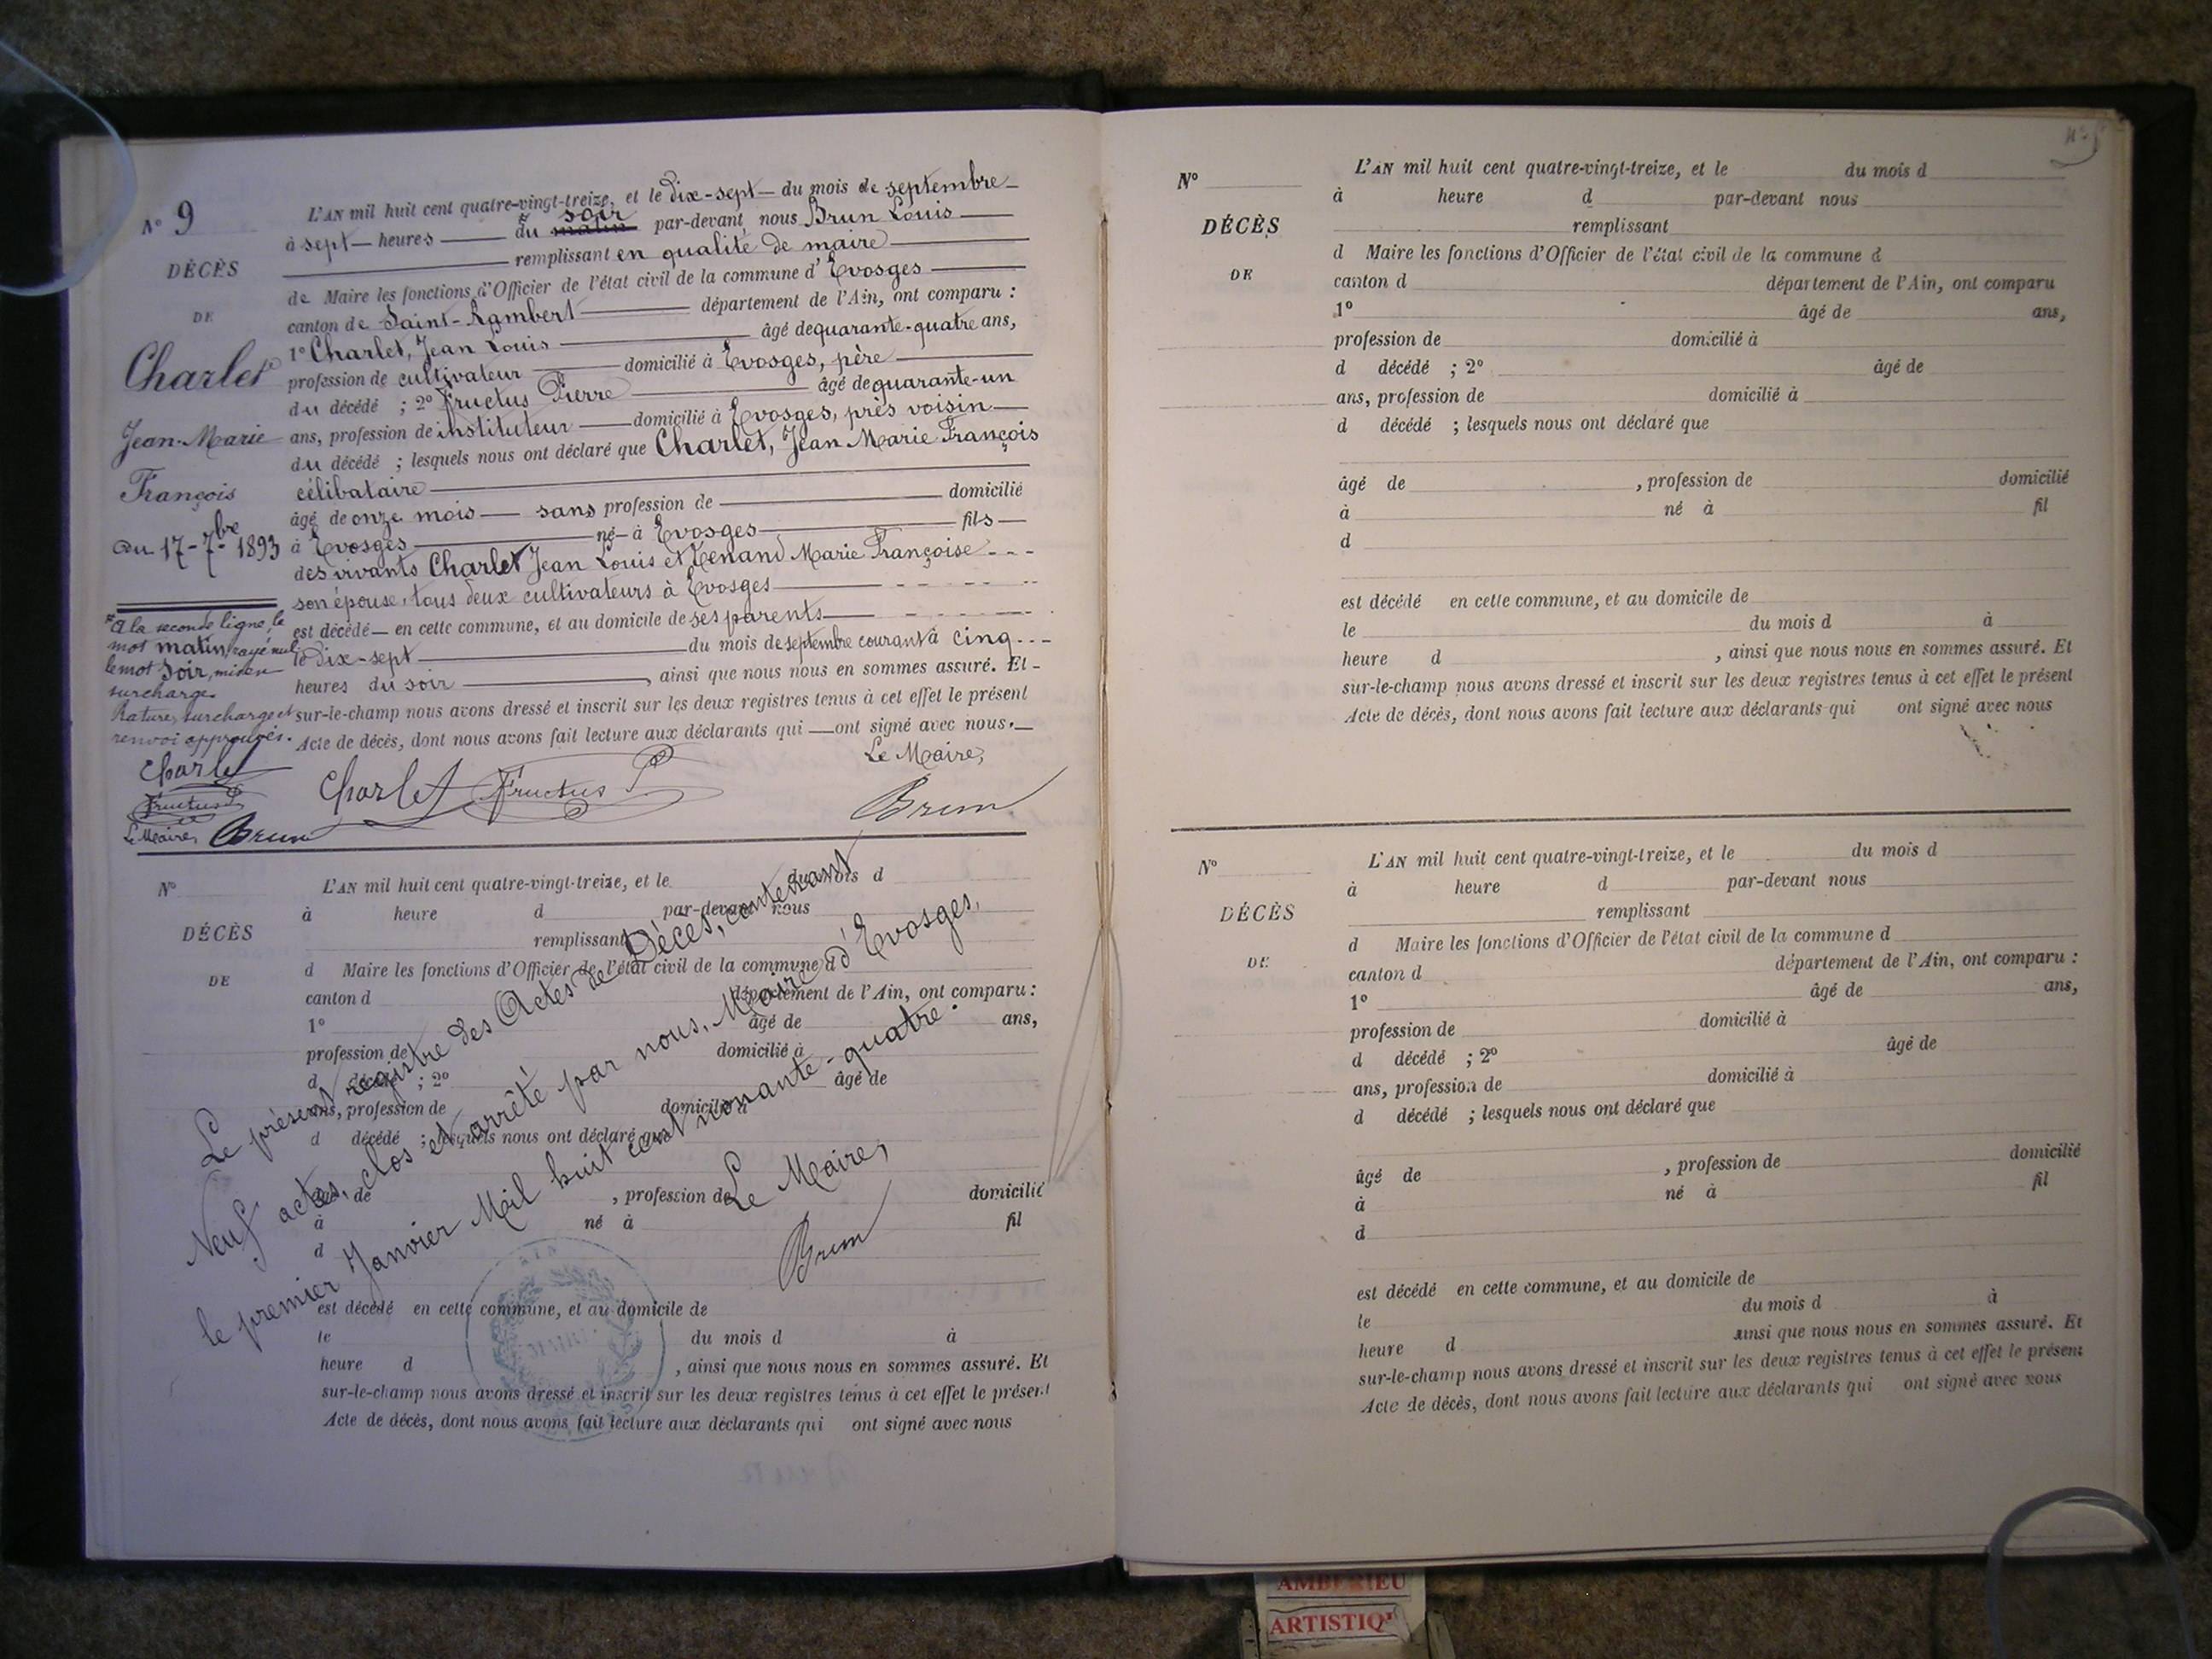 N° 9
DÉCÈS
DE
Charlet
Jean-Marie
François
Du 17-7bre 1893
A la seconde ligne, le
mot matin, rayé nul
le mot soir, mis en
surcharge.
Rature, surcharge et
renvoi approuvés.
Charlet
Fructus P
Le Maire, Brun
L'AN mil huit cent quatre-vingt-treize, et le dix-sept du mois de septembre
à sept heures du matin soir par-devant nous Brun Louis
remplissant en qualité de maire
de Maire les fonctions d'Officier de l'état civil de la commune d'Evosges
canton de Saint-Rambert département de l'Ain, ont comparu :
1° Charlet, Jean Louis âgé de quarante-quatre ans,
profession de cultivateur domicilié à Evosges, père
du décédé ; 2° Fructus Pierre âgé de quarante-un
ans, profession de instituteur domicilié à Evosges, près voisin
du décédé ; lesquels nous ont déclaré que Charlet, Jean Marie François
célibataire
âgé de onze mois sans profession de domicilié
à Evosges né à Evosges fils
des vivants Charlet Jean Louis et Tenand Marie Françoise
son épouse, tous deux cultivateurs à Evosges
est décédé en cette commune, et au domicile de ses parents
le dix-sept du mois de septembre courant à cinq
heures du soir, ainsi que nous nous en sommes assuré. Et
sur-le-champ nous avons dressé et inscrit sur les deux registres tenus à cet effet le présent
Acte de décès, dont nous avons fait lecture aux déclarants qui ont signé avec nous.
Le Maire,
Charlet Fructus P Brun
N°
DÉCÈS
DE
L'AN mil huit cent quatre-vingt-treize, et le du mois d
à heure d par-devant nous
remplissant
d Maire les fonctions d'Officier de l'état civil de la commune d
canton d département de l'Ain, ont comparu :
1° âgé de ans,
profession de domicilié à
d décédé ; 2° âgé de
ans, profession de domicilié à
d décédé ; lesquels nous ont déclaré que
âgé de , profession de domicilié
à né à fil
d
est décédé en cette commune, et au domicile de
le du mois d à
heure d , ainsi que nous nous en sommes assuré. Et
sur-le-champ nous avons dressé et inscrit sur les deux registres tenus à cet effet le présent
Acte de décès, dont nous avons fait lecture aux déclarants qui ont signé avec nous
Le présent registre des Actes de Décès, contenant
Neuf actes, clos et arrêté par nous, Maire d'Evosges,
le premier Janvier Mil huit cent nonante-quatre.
Le Maire,
Brun
N°
DÉCÈS
DE
L'AN mil huit cent quatre-vingt-treize, et le du mois d
à heure d par-devant nous
remplissant
d Maire les fonctions d'Officier de l'état civil de la commune d
canton d département de l'Ain, ont comparu
1° âgé de ans,
profession de domicilié à
d décédé ; 2° âgé de
ans, profession de domicilié à
d décédé ; lesquels nous ont déclaré que
âgé de , profession de domicilié
à né à fil
d
est décédé en cette commune, et au domicile de
le du mois d à
heure d , ainsi que nous nous en sommes assuré. Et
sur-le-champ nous avons dressé et inscrit sur les deux registres tenus à cet effet le présent
Acte de décès, dont nous avons fait lecture aux déclarants qui ont signé avec nous
N°
DÉCÈS
DE
L'AN mil huit cent quatre-vingt-treize, et le du mois d
à heure d par-devant nous
remplissant
d Maire les fonctions d'Officier de l'état civil de la commune d
canton d département de l'Ain, ont comparu :
1° âgé de ans,
profession de domicilié à
d décédé ; 2° âgé de
ans, profession de domicilié à
d décédé ; lesquels nous ont déclaré que
âgé de , profession de domicilié
à né à fil
d
est décédé en cette commune, et au domicile de
le du mois d à
heure d ainsi que nous nous en sommes assuré. Et
sur-le-champ nous avons dressé et inscrit sur les deux registres tenus à cet effet le présent
Acte de décès, dont nous avons fait lecture aux déclarants qui ont signé avec nous
AMBERIEU
ARTISTIQ